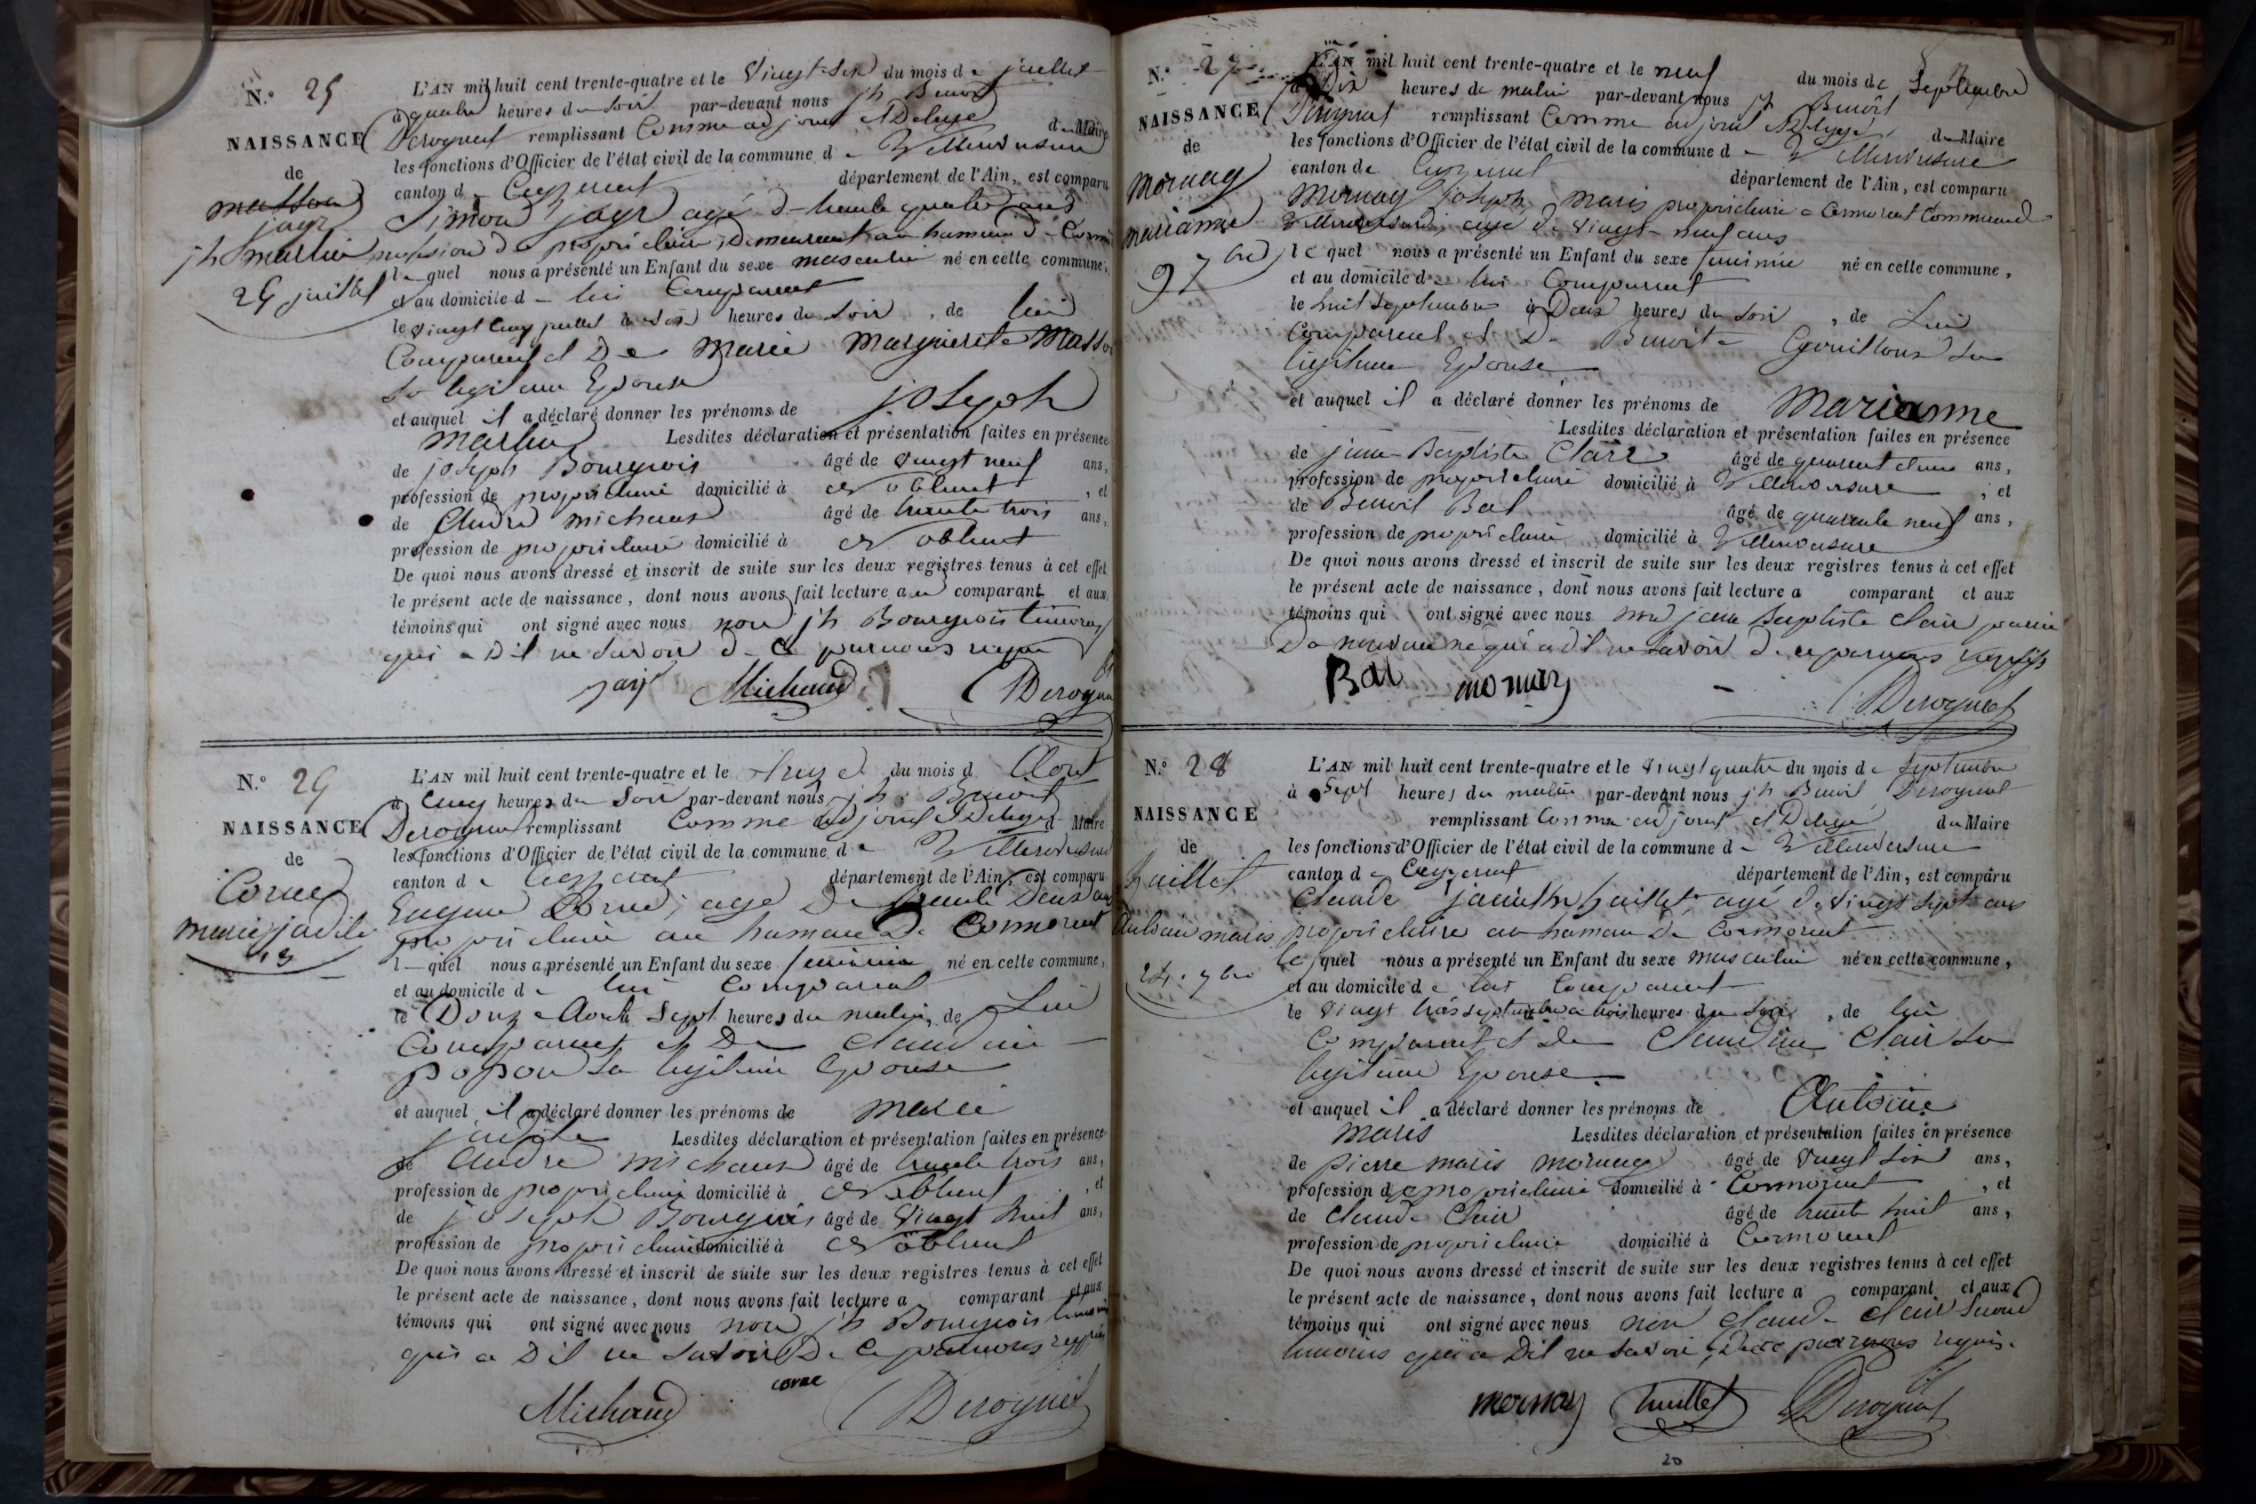 N.º 25
NAISSANCE
de
masson
jayr
jh martin
25 juillet
L'AN mil huit cent trente-quatre et le Vingt-six du mois de juillet
à quatre heures du soir par-devant nous jh Benoit
Deroguat remplissant Comme adjoint et Deleguè du Maire
les fonctions d'Officier de l'état civil de la commune de Villereversure
canton de Ceyzeriat département de l'Ain, est comparu
Simon jayr agé de trente quatre ans
profession de propriétaire, demeurant au hameau de
lequel nous a présenté un Enfant du sexe masculin né en cette commune,
et au domicile de lui Comparant
le Vingt cinq juillet à six heures du soir, de lui
Comparant et De marie marguerite masson
sa legitime Epouse
et auquel il a déclaré donner les prénoms de joseph
martin Lesdites déclaration et présentation faites en présence
de joseph Bourgeois âgé de vingt neuf ans,
profession de propriétaire domicilié à , et
de Claude michaud âgé de trente trois ans,
profession de propriétaire domicilié à
De quoi nous avons dressé et inscrit de suite sur les deux registres tenus à cet effet
le présent acte de naissance, dont nous avons fait lecture au comparant et aux
témoins qui ont signé avec nous non jh Bourgeois temoin
qui a Dit ne savoir de ce par nous requis
jayr Michaud Deroguat
N.º 26
NAISSANCE
de
Corne
marie
13
L'AN mil huit cent trente-quatre et le treize du mois d'Aout
à Cinq heures du Soir par-devant nous jh Benoit
Deroguat remplissant Comme adjoint et Delegué du Maire
les fonctions d'Officier de l'état civil de la commune de Villereversure
canton de Ceyzeriat département de l'Ain, est comparu
Eugene Corne, age De trente Deux ans
propriétaire au hameau De Cormorent
lequel nous a présenté un Enfant du sexe feminin né en cette commune,
et au domicile de lui Comparant
le Douze Aout à Sept heures du matin, de Lui
Comparant et De Claudine
popon sa legitime Epouse
et auquel il a déclaré donner les prénoms de marie
Lesdites déclaration et présentation faites en présence
de Claude michaud âgé de trente trois ans,
profession de propriétaire domicilié à , et
de joseph Bourgeois âgé de Vingt huit ans,
profession de propriétaire domicilié à
De quoi nous avons dressé et inscrit de suite sur les deux registres tenus à cet effet
le présent acte de naissance, dont nous avons fait lecture a comparant et aux
témoins qui ont signé avec nous non jh Bourgeois temoin
qui a Dit ne savoir De Ce par nous requis
Michaud corne Deroguat
N.º 27
NAISSANCE
de
mornay
marianne
9 7bre
L'AN mil huit cent trente-quatre et le neuf du mois de Septembre
à Dix heures du matin par-devant nous jh Benoit
Deroguat remplissant Comme adjoint et Delegué du Maire
les fonctions d'Officier de l'état civil de la commune de Villereversure
canton de Ceyzeriat département de l'Ain, est comparu
mornay joseph, marie propriétaire a Cormorent Commune de
Villereversure agé de vingt-neuf ans
lequel nous a présenté un Enfant du sexe feminin né en cette commune,
et au domicile de lui Comparant
le huit Septembre à Deux heures du Soir, de Lui
Comparant et De Benoite Gouilloux sa
legitime Epouse
et auquel il a déclaré donner les prénoms de Marianne
Lesdites déclaration et présentation faites en présence
de jean-Baptiste Clair âgé de ans,
profession de propriétaire domicilié à Villereversure, et
de Benoit Bal âgé de quarante neuf ans,
profession de propriétaire domicilié à Villereversure
De quoi nous avons dressé et inscrit de suite sur les deux registres tenus à cet effet
le présent acte de naissance, dont nous avons fait lecture a comparant et aux
témoins qui ont signé avec nous non jean Baptiste Clair
qui a dit ne savoir De ce par nous requis
Bal mornay Deroguat
N.º 28
NAISSANCE
de
huillet
Antoine marie
24. 7bre
L'AN mil huit cent trente-quatre et le vingt quatre du mois de Septembre
à Sept heures du matin par-devant nous jh Benoit Deroguat
remplissant Comme adjoint et Delegué du Maire
les fonctions d'Officier de l'état civil de la commune de Villereversure
canton de Ceyzeriat département de l'Ain, est comparu
Claude huillet agé de vingt sept ans
propriétaire au hameau De Cormorent
lequel nous a présenté un Enfant du sexe masculin né en cette commune,
et au domicile de lui Comparant
le Vingt trois septembre à trois heures du Soir, de lui
Comparant et De Claudine Clair sa
legitime Epouse
et auquel il a déclaré donner les prénoms de Antoine
marie Lesdites déclaration et présentation faites en présence
de pierre marie mornay âgé de Vingt six ans,
profession de propriétaire domicilié à Cormorent, et
de Claude Clair âgé de trente huit ans,
profession de propriétaire domicilié à Cormorent
De quoi nous avons dressé et inscrit de suite sur les deux registres tenus à cet effet
le présent acte de naissance, dont nous avons fait lecture a comparant et aux
témoins qui ont signé avec nous non Claude Clair second
temoins qui a Dit ne savoir, De ce par nous requis.
mornay huillet Deroguat
20